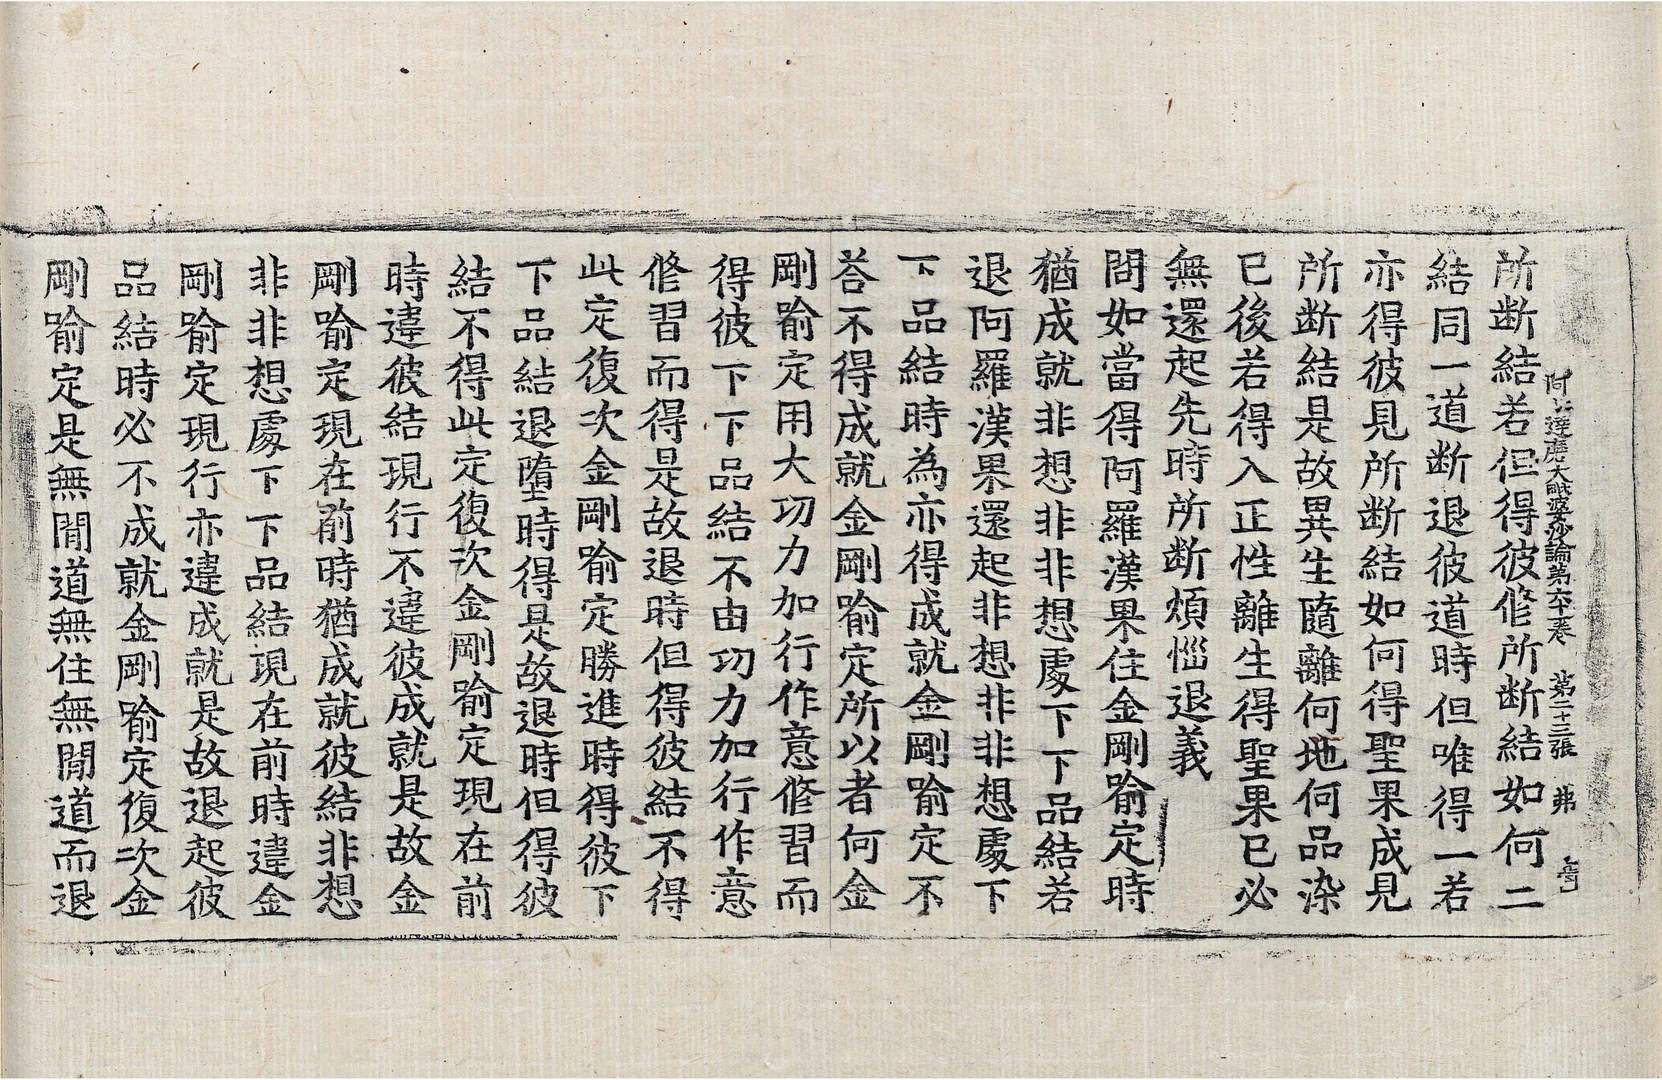 阿毗達磨大毗婆沙論第六十一卷 第二十三張 弗
所断結若但得彼修所断結如何二
結同一道断退彼道時但唯得一若
亦得彼見所断結如何得聖果成見
所断結是故異生隨離何地何品染
已後若得入正性離生得聖果已必
無還起先時所断煩惱退義
問如當得阿羅漢果住金剛喻定時
猶成就非想非非想處下下品結若
退阿羅漢果還起非想非非想處下
下品結時為亦得成就金剛喻定不
荅不得成就金剛喻定所以者何金
剛喻定用大功力加行作意修習而
得彼下下品結不由功力加行作意
修習而得是故退時但得彼結不得
此定復次金剛喻定勝進時得彼下
下品結退墮時得是故退時但得彼
結不得此定復次金剛喻定現在前
時違彼結現行不違彼成就是故金
剛喻定現在前時猶成就彼結非想
非非想處下下品結現在前時違金
剛喻定現行亦違成就是故退起彼
品結時必不成就金剛喻定復次金
剛喻定是無間道無住無間道而退